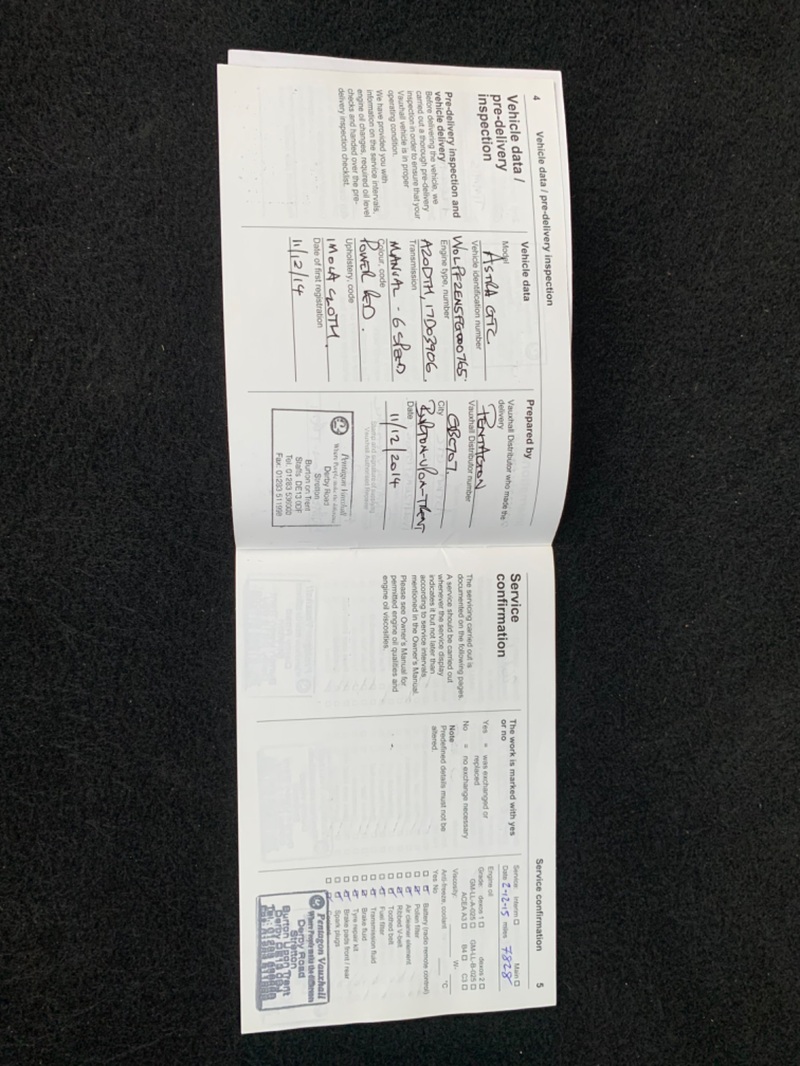 4 Vehicle data / pre-delivery inspection
Vehicle data /
pre-delivery
inspection
Pre-delivery inspection and
vehicle delivery
Before delivering the vehicle, we
carried out a thorough pre-delivery
inspection in order to ensure that your
Vauxhall vehicle is in proper
operating condition.
We have provided you with
information on the service intervals,
engine oil changes, required oil level
checks and handed over the pre-
delivery inspection checklist.
Vehicle data
Model
ASTRA GTC
Vehicle identification number
Engine type, number
A20DTH, 17D03906
Transmission
MANUAL - 6 SPEED
Colour, code
POWER RED.
Upholstery, code
IMOLA CLOTH.
Date of first registration
11/12/14
Prepared by
Vauxhall Distributor who made the
delivery
PENTAGON
Vauxhall Distributor number
City
BURTON-UPON-TRENT
Date
11/12/2014
Pentagon Vauxhall
Derby Road
Stretton
Burton on Trent
Staffs DE13 0DF
Tel: 01283 536000
Fax: 01283 511998
Service confirmation 5
Service
confirmation
The servicing carried out is
documented on the following pages.
A service should be carried out
whenever the service display
indicates it but not later than
according to service intervals
mentioned in the Owner's Manual.
Please see Owner's Manual for
permitted engine oil qualities and
engine oil viscosities.
The work is marked with yes
or no
Yes = was exchanged or
replaced
No = no exchange necessary
Note
Predefined details must not be
altered.
Service: Interim Main
Date 2-12-15 miles 7828
Engine oil
Grade: dexos 1 dexos 2
GM-LL-A-025 GM-LL-B-025
ACEA A3 B4 C3
Viscosity: W-
Anti-freeze, coolant °C
Yes No
Battery (radio remote control)
Pollen filter
Air cleaner element
Ribbed V-belt
Toothed belt
Fuel filter
Transmission fluid
Brake fluid
Tyre repair kit
Brake pads front / rear
Spark plugs
Pentagon Vauxhall
Derby Road
Stretton
Burton Upon Trent